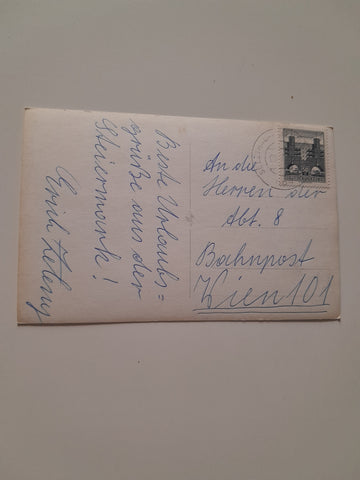 Beste Urlaubs=
grüße aus der
Steiermark!
Erich
An die
Herren der
Abt. 8
Bahnpost
Wien 101